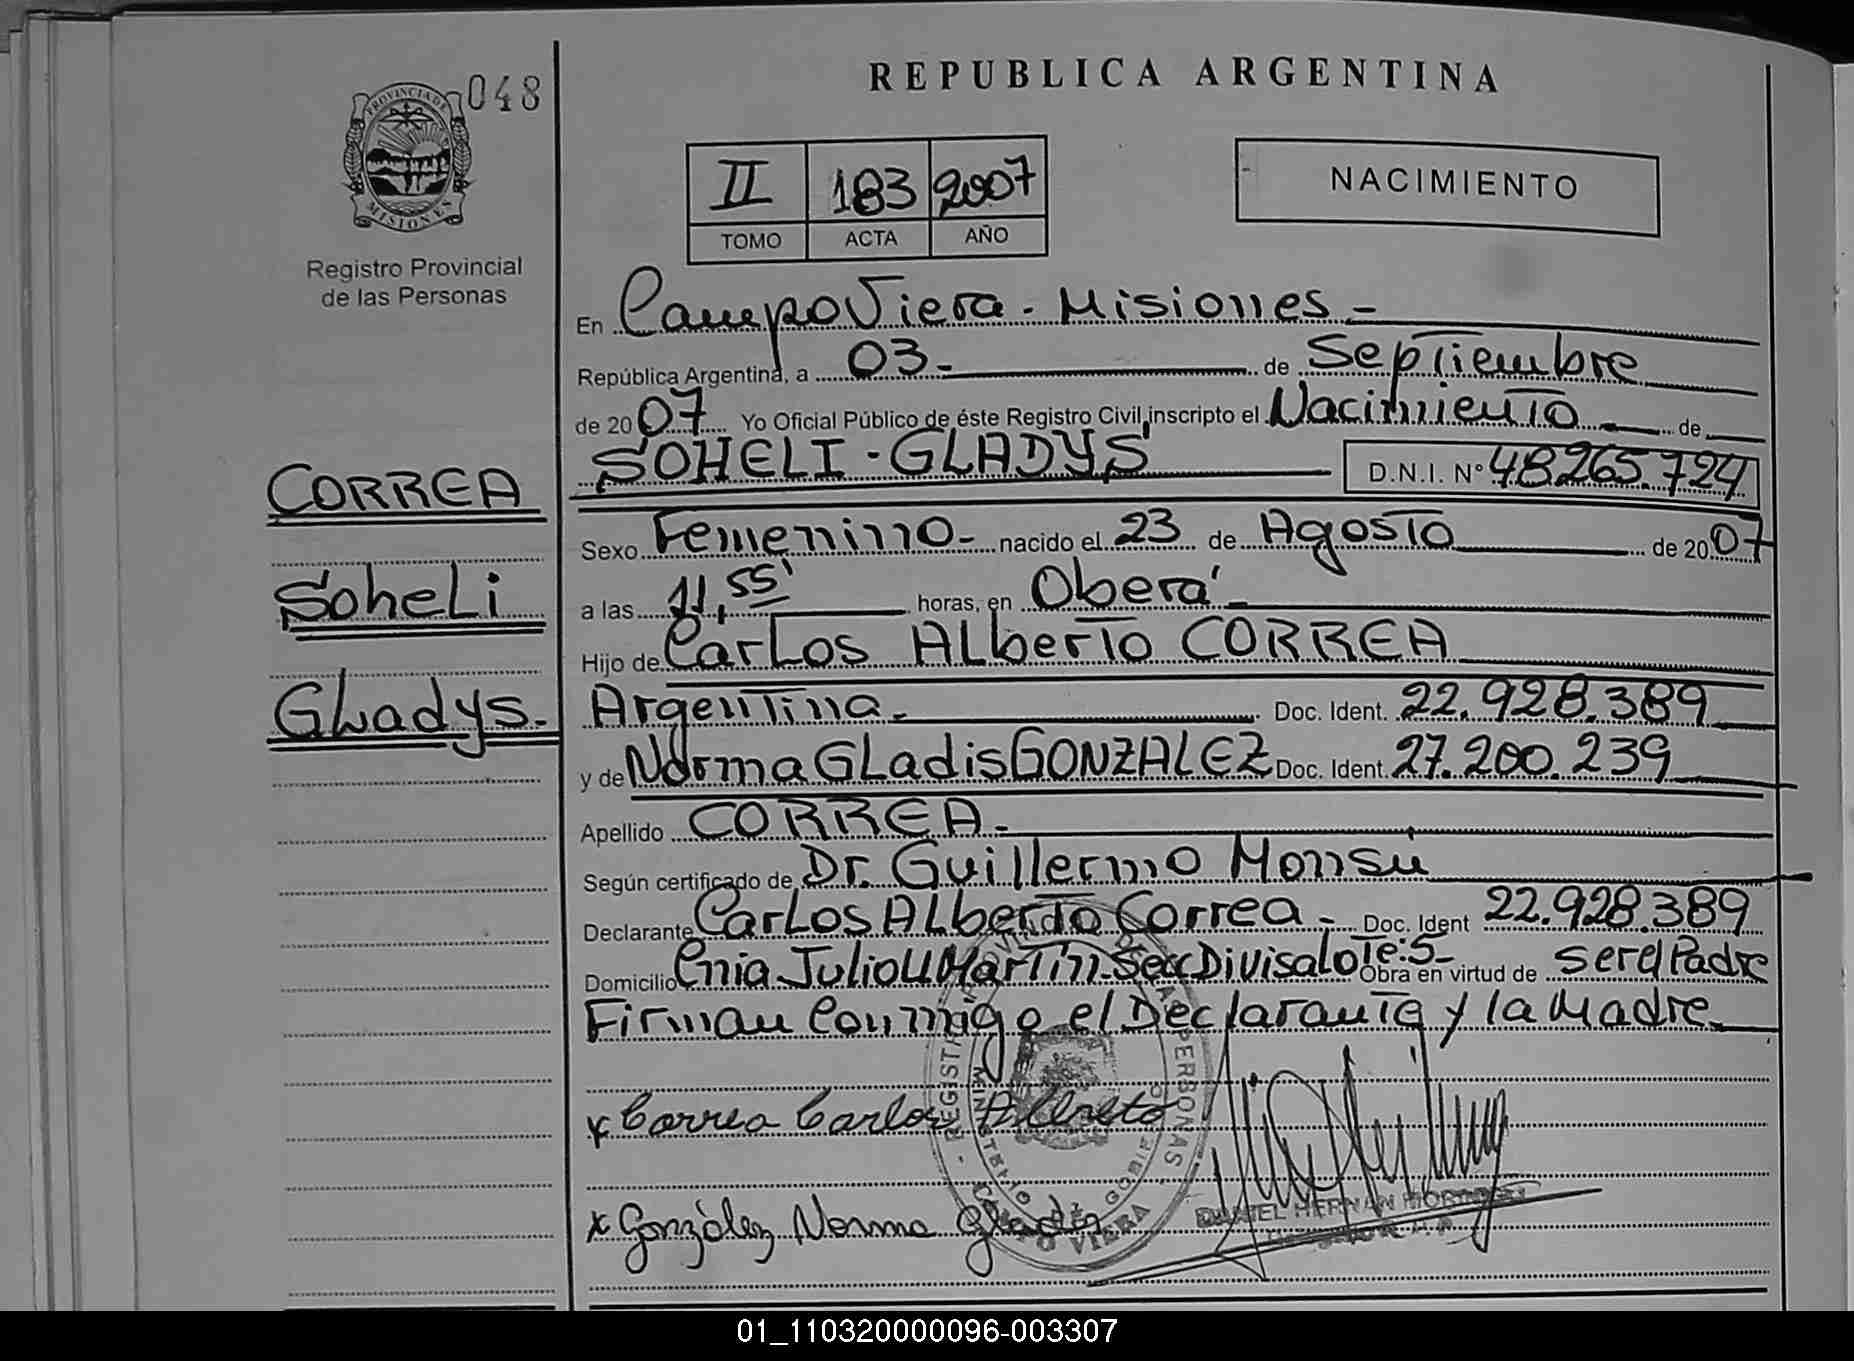 048
PROVINCIA DE
MISIONES
Registro Provincial
de las Personas
CORREA
Soheli
Gladys.-
REPUBLICA ARGENTINA
II 183 2007
TOMO ACTA AÑO
NACIMIENTO
En Campo Viera - Misiones -
República Argentina, a 03- de Septiembre
de 2007 Yo Oficial Público de éste Registro Civil inscripto el Nacimiento de
SOHELI - GLADYS D.N.I. N° 48.265.724
Sexo Femenino- nacido el 23 de Agosto de 2007
a las 11,55' horas, en Oberá -
Hijo de Carlos Alberto CORREA
Argentina - Doc. Ident. 22.928.389
y de Norma Gladis GONZALEZ Doc. Ident. 27.200.239
Apellido CORREA -
Según certificado de Dr. Guillermo Monsú
Declarante Carlos Alberto Correa - Doc. Ident 22.928.389
Domicilio Cnia Julio U Martin-Secc Divisa Lote:5- Obra en virtud de ser el Padre
Firman Conmigo el Declarante y la Madre -
x Correa Carlos Alberto
x González Norma Gladis
REGISTRO PROVINCIAL DE LAS PERSONAS
MINISTERIO DE GOBIERNO
CAMPO VIERA
DANIEL HERNAN
01_110320000096-003307